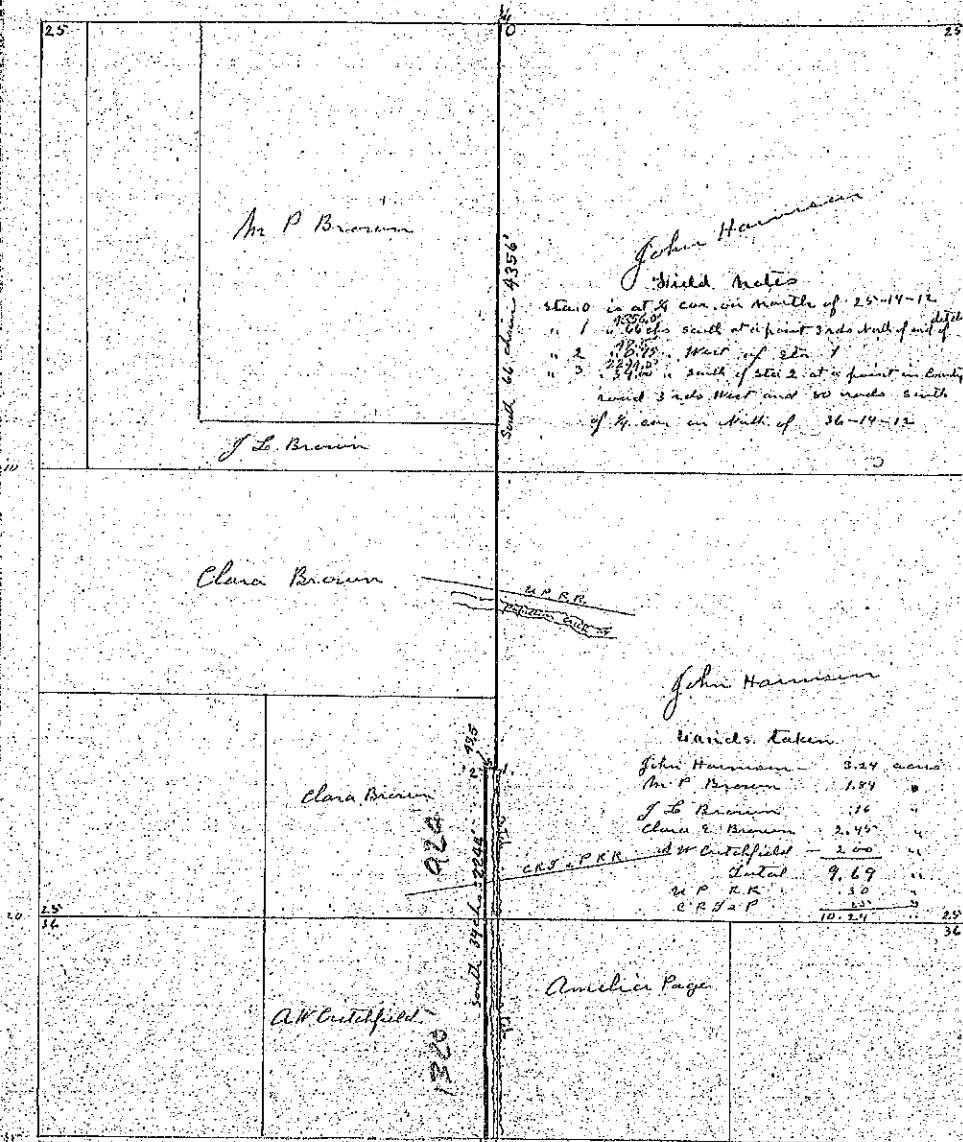 25
1/4
0
25
M P Brown
South 66 chains 4356'
John Harrison
Field Notes
Sta. 0 is at 1/4 cor. on North of 25-14-12
" 1 " 66 chs south at a point 3 rds North of end of ditch
4356.0'
" 2 " .75 " West of Sta 1
" 3 " 34.00 " South of Sta 2 at a point in County
road 3 rds West and 80 rods South
of 1/4 cor on North of 36-14-12
J L Brown
Clara Brown
U P R R
Papillion Creek
John Harrison
Lands taken
John Harrison - 3.24 acres
M P Brown 1.84 "
J L Brown .16 "
Clara E Brown 2.45 "
A W Critchfield - 2.00 "
Total 9.69 "
U P RR .30 "
C R I & P .25 "
10.24 "
49.5
2
1
Clara Brown
922
South 34 chs. 2244'
C R I & P RR
25
36
25
36
A W Critchfield
1320'
Amelia Page